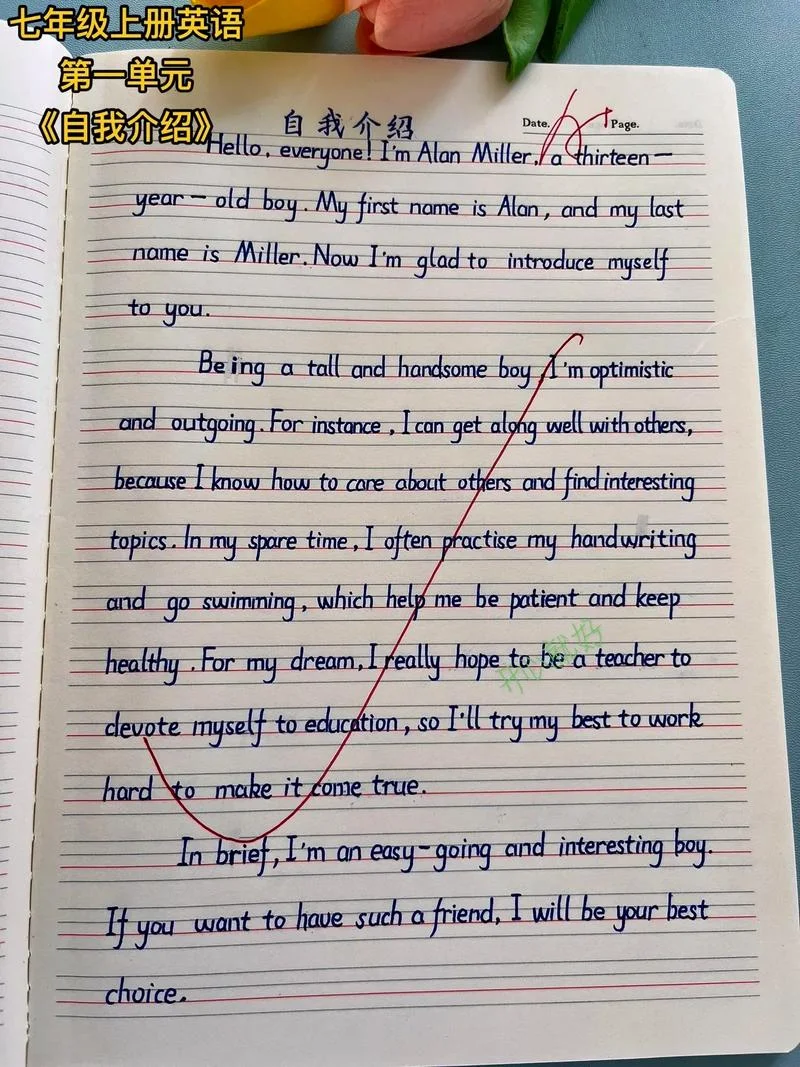 七年级上册英语
第一单元
《自我介绍》
自我介绍
Date.
Page.
Hello, everyone! I'm Alan Miller, a thirteen-
year-old boy. My first name is Alan, and my last
name is Miller. Now I'm glad to introduce myself
to you.
Being a tall and handsome boy, I'm optimistic
and outgoing. For instance, I can get along well with others,
because I know how to care about others and find interesting
topics. In my spare time, I often practise my handwriting
and go swimming, which help me be patient and keep
healthy. For my dream, I really hope to be a teacher to
devote myself to education, so I'll try my best to work
hard to make it come true.
In brief, I'm an easy-going and interesting boy.
If you want to have such a friend, I will be your best
choice.